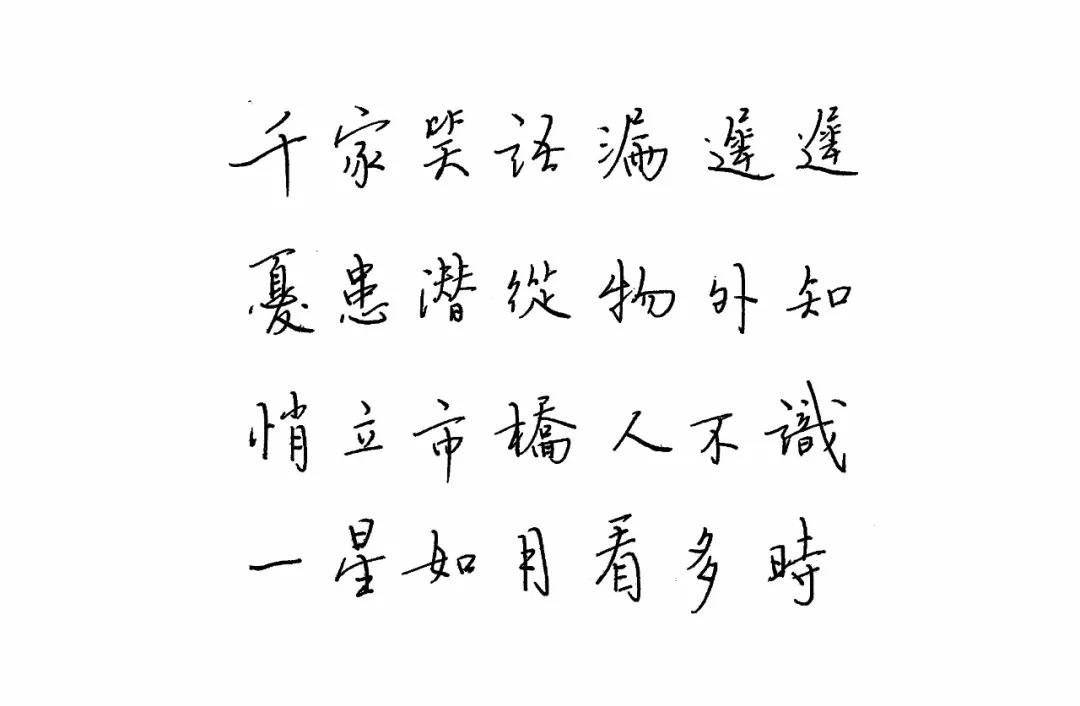 千家笑語漏遲遲
憂患潛從物外知
悄立市橋人不識
一星如月看多時